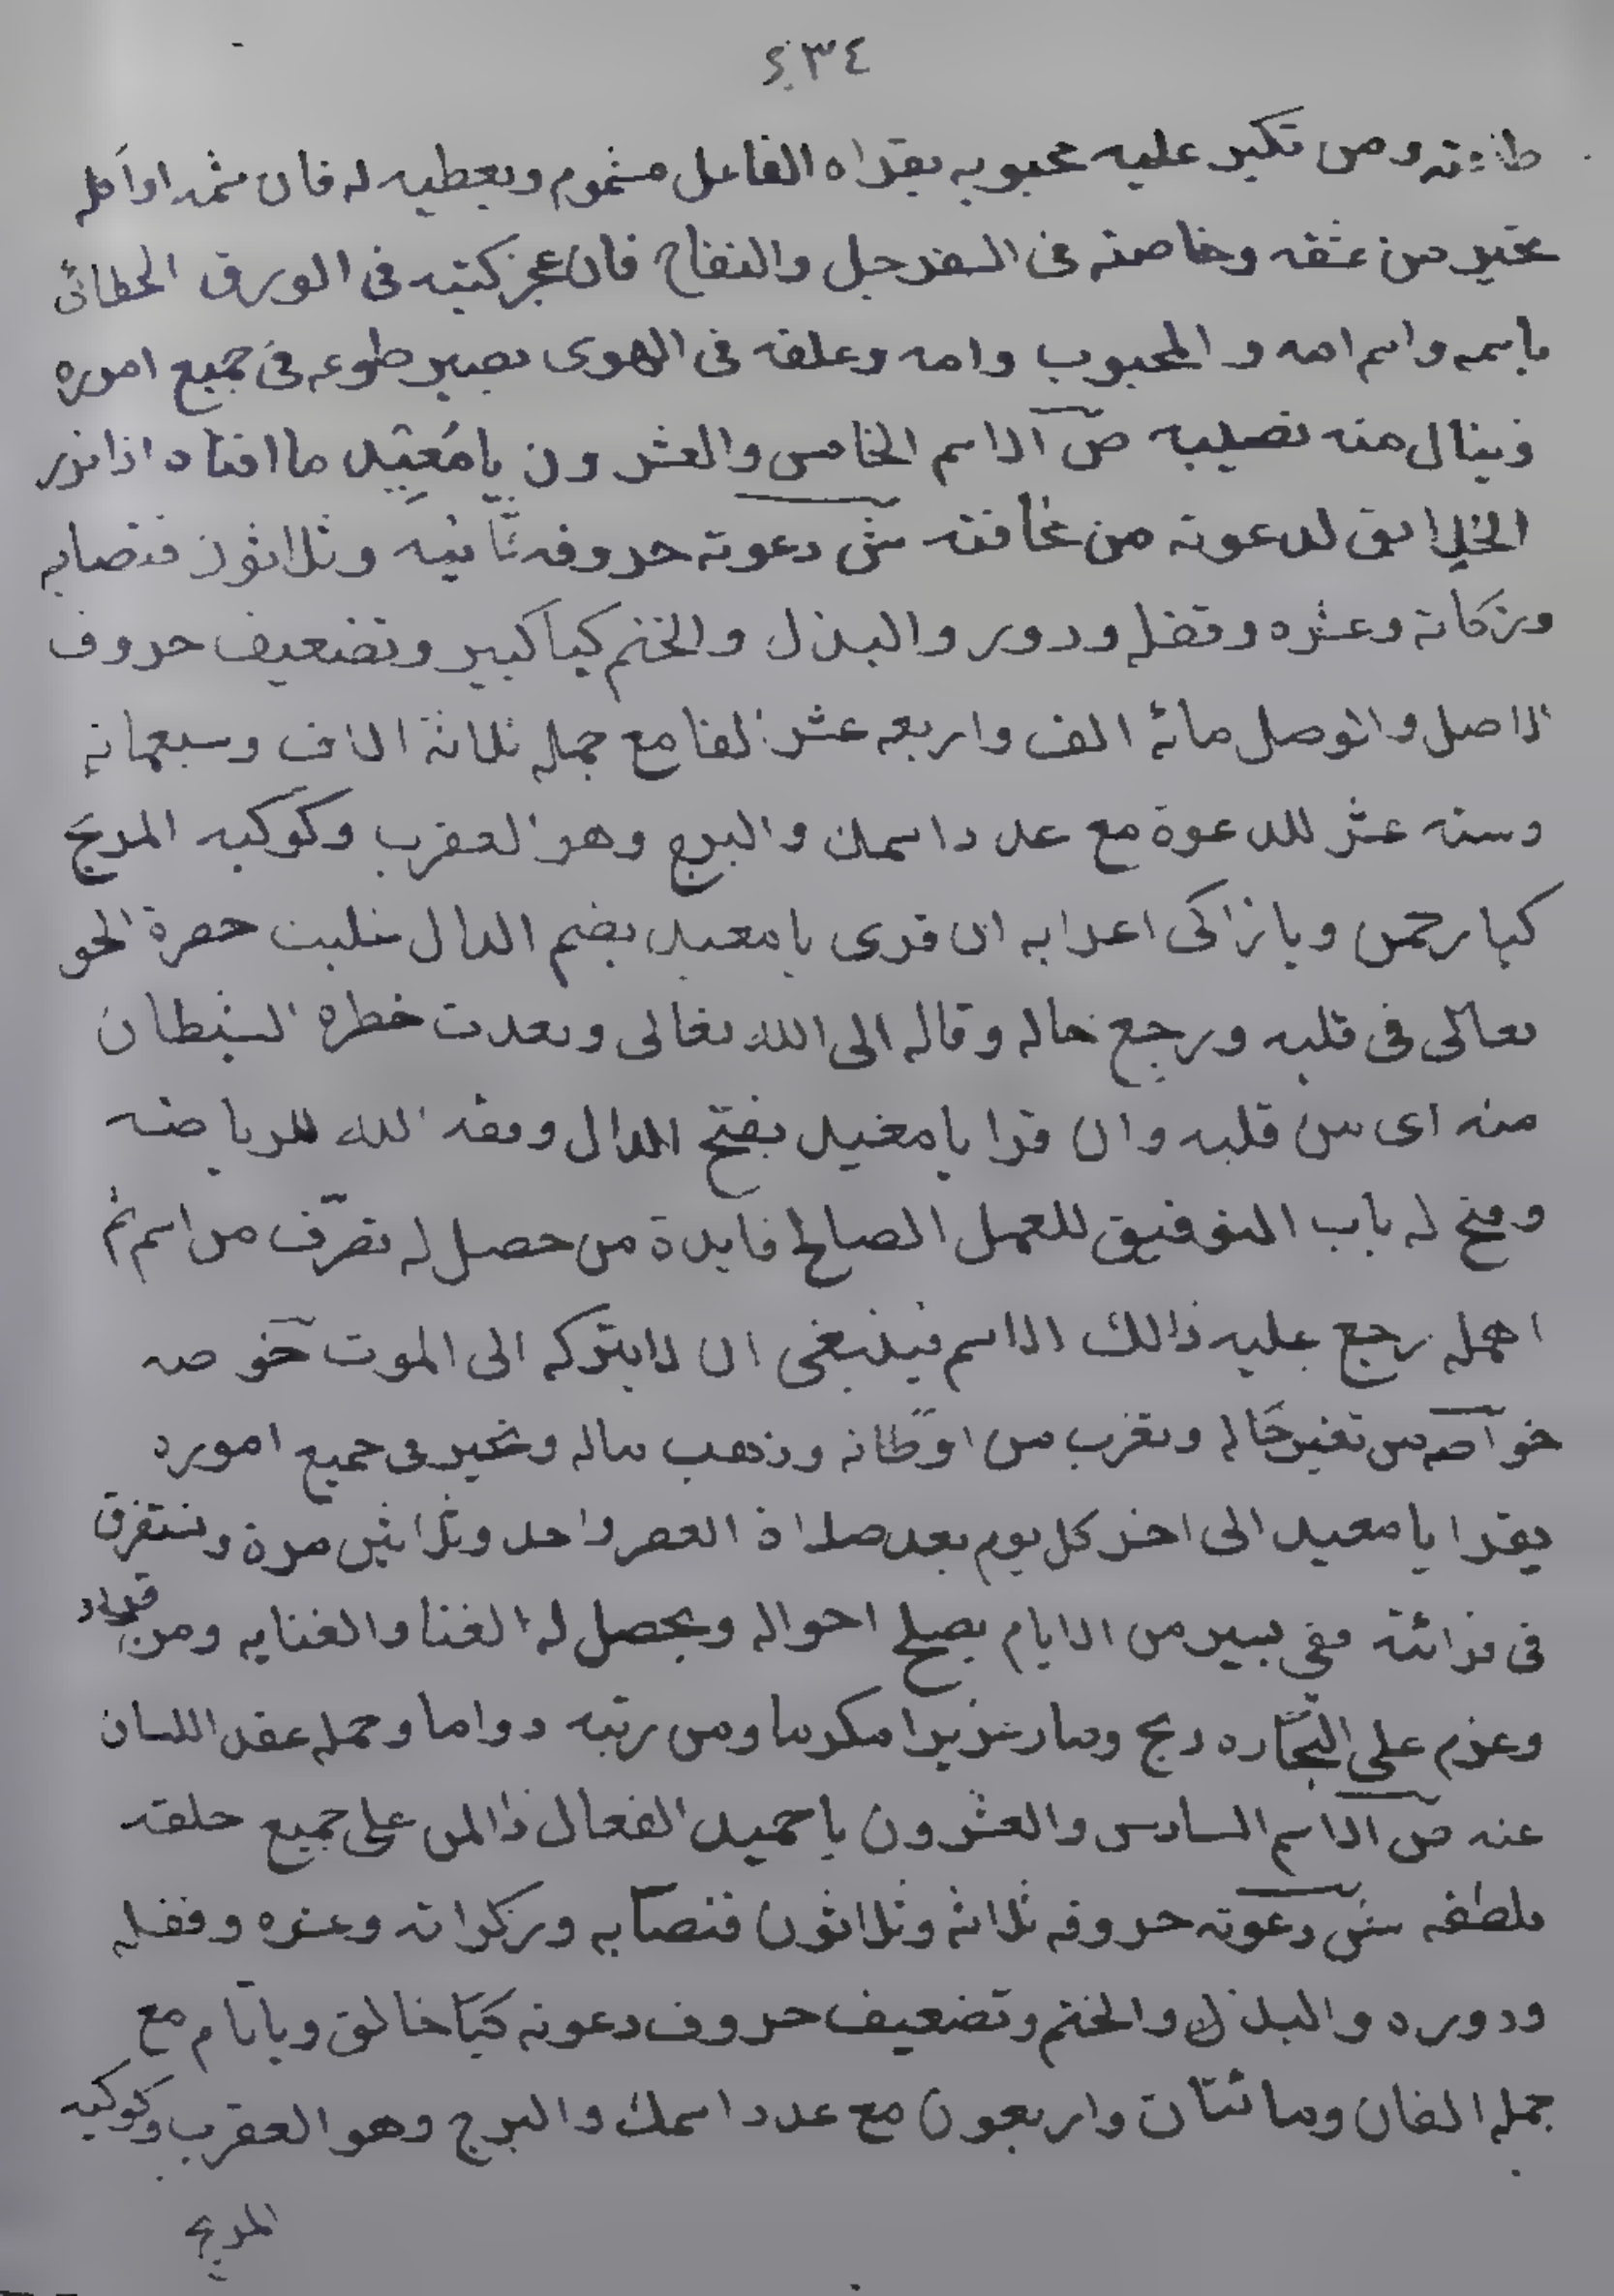 ٤٣٤
ومن تكبر عليه محبوبه يقراه الفاعل مشموم ويعطيه له فان شمه او اكله
تحير من عشقه وخاصته فى السفرجل والتفاح فان عجز كتبه فى الورق الخطائى
باسمه واسم امه والمحبوب وامه وعلقه فى الهوى يصير طوعه فى جميع اموره
فينال منه نصيبه ص الاسم الخامس والعشرون يا مُعِيد ما افناه اذا برز
الخلايق لدعوته من مخافته ش دعوته حروفه ثمانيه وثلاثون فنصابه
وزكاته وعشره وقفله ودور والبذل والختم كيا كبير وتضعيف حروف
الاصل والوصل مائة الف واربعه عشر الفا مع جمله ثلاثة الاف وسبعمائه
وسته عشر للدعوة مع عدد اسمك والبرج وهو العقرب وكوكبه المريخ
كيا رحمن ويا زاكى اعرابه ان قرى يا معيد بضم الدال غلبت حضرة الحق
تعالى فى قلبه ورجع حاله وقاله الى الله تعالى وبعدت خطره الشيطان
منه اى من قلبه وان قرا يا معيد بفتح الدال وفقه الله للرياضه
وفتح له باب التوفيق للعمل الصالح فايدة من حصل له تصرّف من اسم ثم
اهمله رجع عليه ذالك الاسم فينبغى ان لا يتركه الى الموت خوصه
خواصه من تغير حاله وتغرب من اوطانه وذهب ماله وتحير فى جميع اموره
يقرا يا معيد الى اخر كل يوم بعد صلاة العصر واحد وثلاثين مرة ويستغرق
فى قرائته ففى يسير من الايام يصلح احواله ويحصل له الغنا والغنايه ومن قراه
وعزم على التجاره ربح وصار عزيزا مكرما ومن رتبه دواما وحمله عقد اللسان
عنه ص الاسم السادس والعشرون يا حميد الفعال ذالمن على جميع خلقه
بلطفه ش دعوته حروفه ثلاثة وثلاثون فنصابه وزكواته وعشره وقفله
ودوره والبذل والختم وتضعيف حروف دعوته كيا خالق ويا تام مع
جمله الفان ومائتان واربعون مع عدد اسمك والبرج وهو العقرب وكوكبه
المريخ